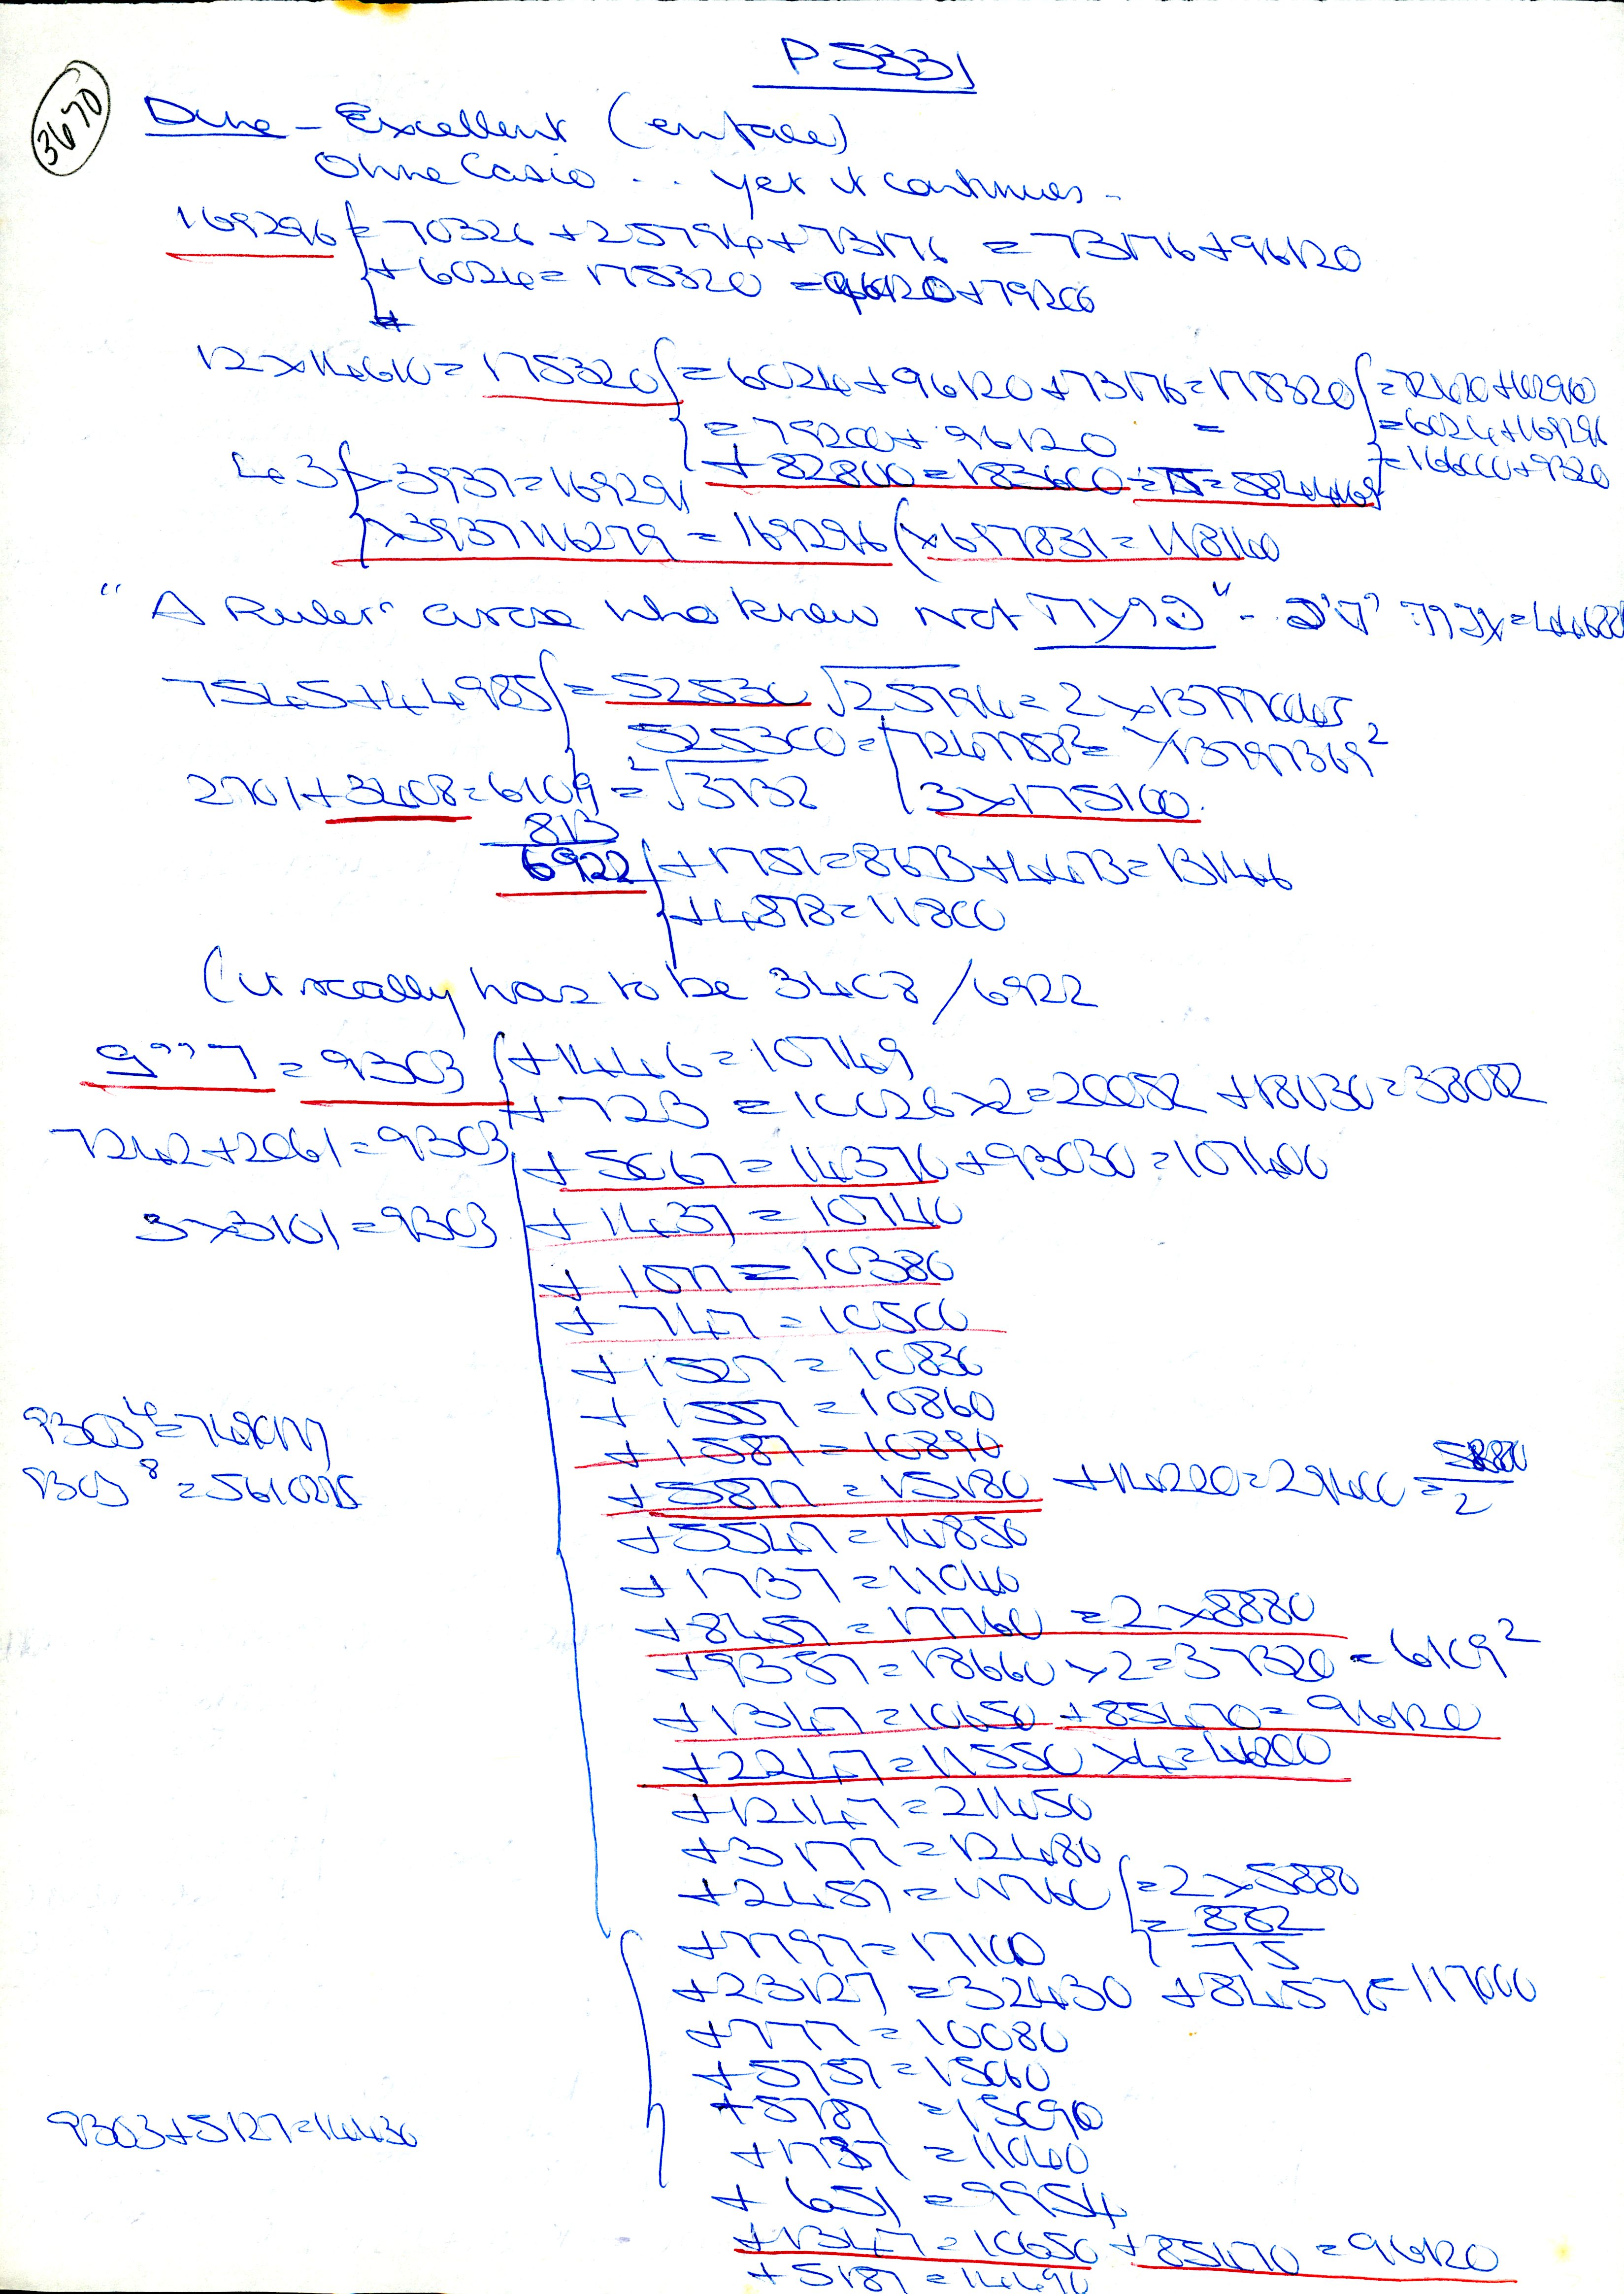 P5331
3670
Dune - Excellent (entale)
Ohne Casio .. yet it continues -
169296 = 70326 + 25794 + 73176 = 73176 + 96120
+ 6024 = 175320 = 96120 + 79200
12 x 14610 = 175320 = 6024 + 96120 + 73176 = 175320 = 72420 + 102900
= 79200 + 96120 = = 6024 + 169296
43 x 3937 = 169291 + 82800 = 183600 ÷ π = 58441.69 = 166000 + 9320
x 3937.116279 = 169296 (x .697831 = 118140
"A Ruler" arose who knew not
7545 + 44985 = 52530 √25794 = 2 x 13797
525300 = 724.7758² = x 13797369²
2701 + 3408 = 6109 = ²√3732 3 x 175100
813
6922 + 1751 = 8673 + 4473 = 13146
+ 4878 = 11800
(it really has to be 3408/6922
9'''7 = 9303 + 1446 = 10749
+ 723 = 10026 x 2 = 20052 + 18030 = 38082
7242 + 2061 = 9303 + 5067 = 14370 + 93030 = 107400
3 x 3101 = 9303 + 1437 = 10740
+ 1077 = 10380
+ 747 = 10500
+ 1527 = 10830
+ 1557 = 10860
9303⁴ = 749
+ 1587 = 10890
9303⁸ = 561
+ 5877 = 15180 + 14220 = 29400 = 58800/2
+ 5547 = 14850
+ 1737 = 11040
+ 8457 = 17760 = 2 x 8880
+ 9357 = 18660 x 2 = 37320 = 6109²
+ 1347 = 10650 + 85470 = 96120
+ 2247 = 11550 x 4 = 46200
+ 12147 = 21450
+ 3177 = 12480
+ 2457 = 11760 = 2 x 5880
= 882/75
+ 7797 = 17100
+ 23127 = 32430 + 84570 = 117000
+ 777 = 10080
+ 5757 = 15060
+ 5787 = 15090
9303 + 5127 = 14430
+ 1737 = 11040
+ 651 = 9954
+ 1347 = 10650 + 85470 = 96120
+ 5187 = 14490